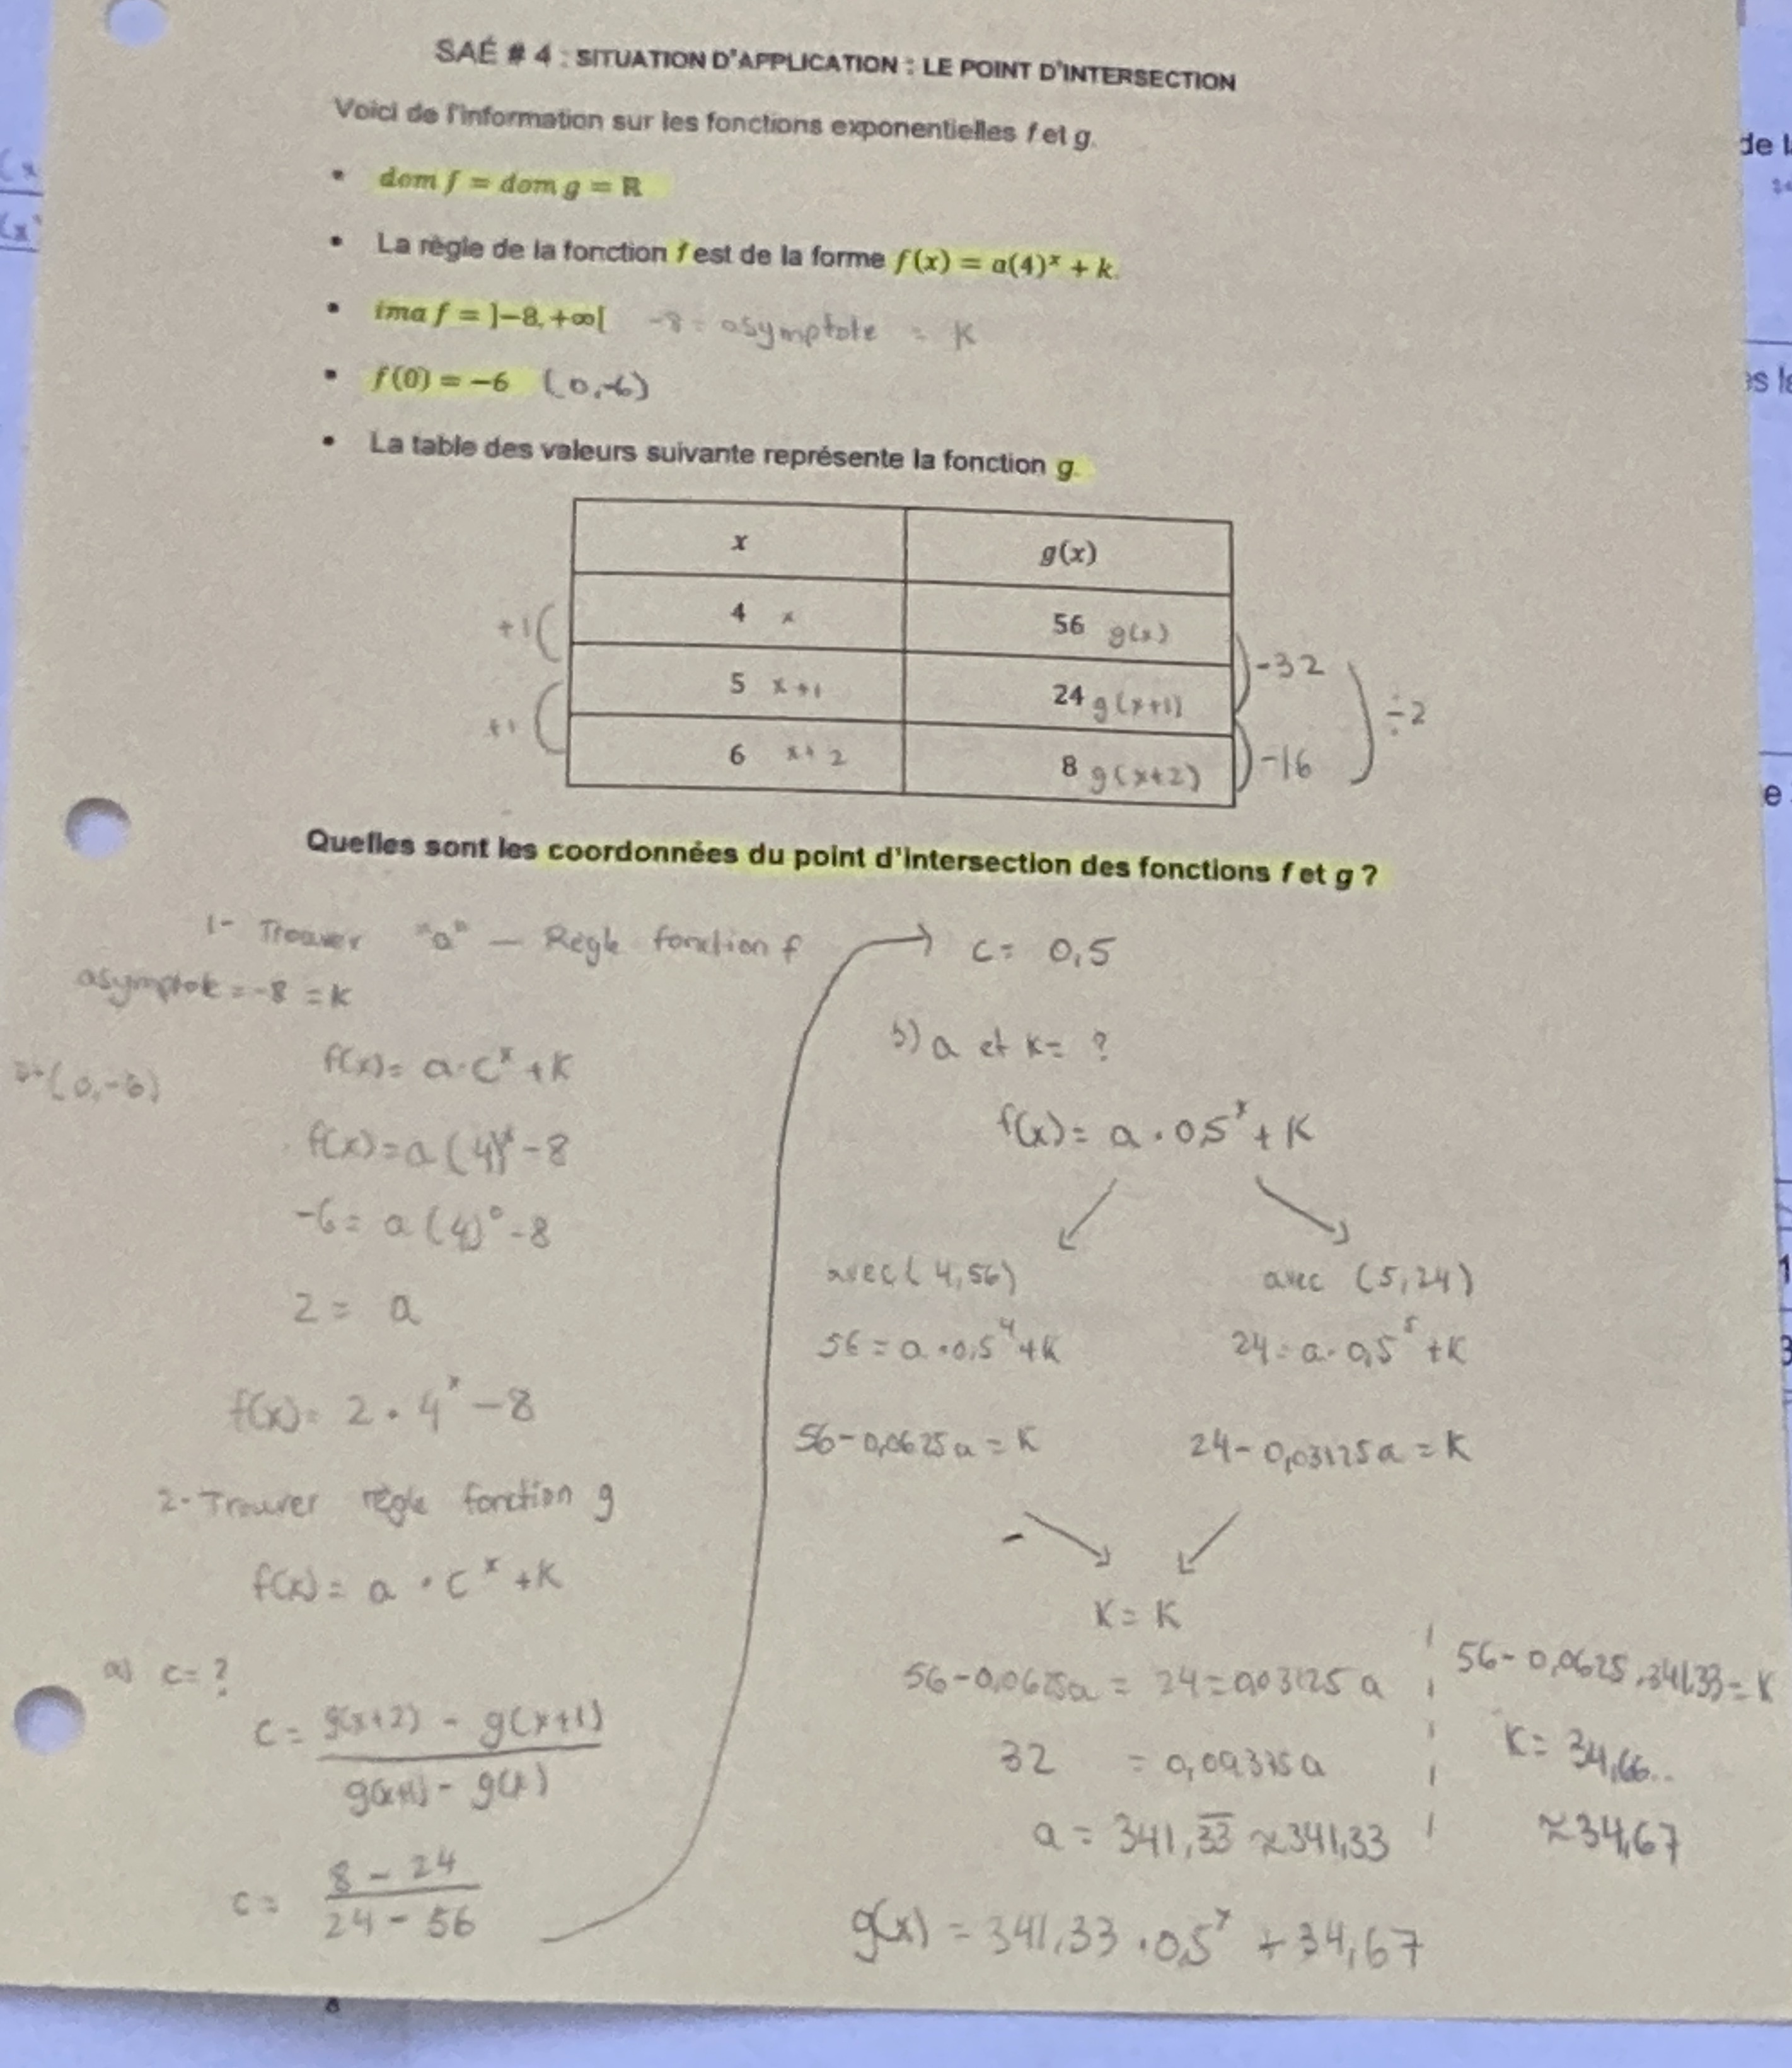 SAÉ # 4 : SITUATION D'APPLICATION : LE POINT D'INTERSECTION
Voici de l'information sur les fonctions exponentielles f et g.
• dom f = dom g = ℝ
• La règle de la fonction f est de la forme f(x) = a(4)ˣ + k.
• ima f = ]−8, +∞[ -8 = asymptote = K
• f(0) = −6 (0,-6)
• La table des valeurs suivante représente la fonction g.
x g(x)
+1 4 x 56 g(x) -32
5 x+1 24 g(x+1) ÷2
+1 6 x+2 8 g(x+2) -16
Quelles sont les coordonnées du point d'intersection des fonctions f et g ?
1- Trouver "a" — Règle fonction f
asymptote = -8 = K
(0,-6)
f(x) = a·cˣ + K
f(x) = a(4)ˣ - 8
-6 = a(4)⁰ - 8
2 = a
f(x) = 2 · 4ˣ - 8
2- Trouver règle fonction g
f(x) = a · cˣ + K
a) c = ?
c = g(x+2) - g(x+1)
g(x+1) - g(x)
c = 8 - 24
24 - 56
→ c = 0,5
b) a et K = ?
f(x) = a · 0,5ˣ + K
avec (4,56) avec (5,24)
56 = a · 0,5⁴ + K 24 = a · 0,5⁵ + K
56 - 0,0625a = K 24 - 0,03125a = K
K = K
56 - 0,0625a = 24 - 0,03125a
32 = 0,09375a
a = 341,33 ≈ 341,33
56 - 0,0625 · 341,33 = K
K = 34,66..
≈ 34,67
g(x) = 341,33 · 0,5ˣ + 34,67